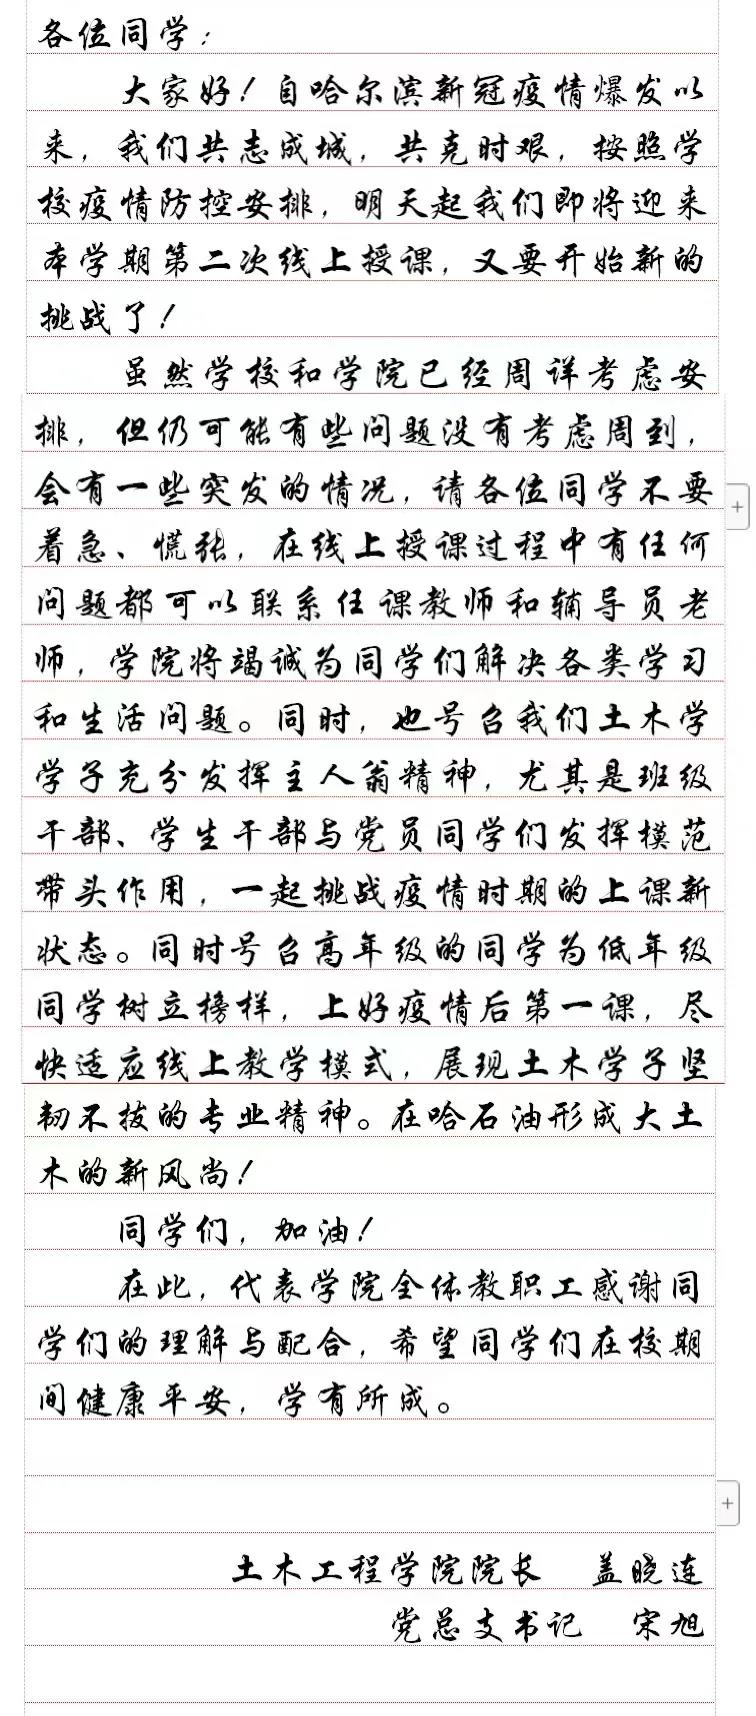 各位同学：
大家好！自哈尔滨新冠疫情爆发以
来，我们共志成城，共克时艰，按照学
校疫情防控安排，明天起我们即将迎来
本学期第二次线上授课，又要开始新的
挑战了！
虽然学校和学院已经周详考虑安
排，但仍可能有些问题没有考虑周到，
会有一些突发的情况，请各位同学不要
着急、慌张，在线上授课过程中有任何
问题都可以联系任课教师和辅导员老
师，学院将竭诚为同学们解决各类学习
和生活问题。同时，也号召我们土木学
学子充分发挥主人翁精神，尤其是班级
干部、学生干部与党员同学们发挥模范
带头作用，一起挑战疫情时期的上课新
状态。同时号召高年级的同学为低年级
同学树立榜样，上好疫情后第一课，尽
快适应线上教学模式，展现土木学子坚
韧不拔的专业精神。在哈石油形成大土
木的新风尚！
同学们，加油！
在此，代表学院全体教职工感谢同
学们的理解与配合，希望同学们在校期
间健康平安，学有所成。
土木工程学院院长 盖晓连
党总支书记 宋旭